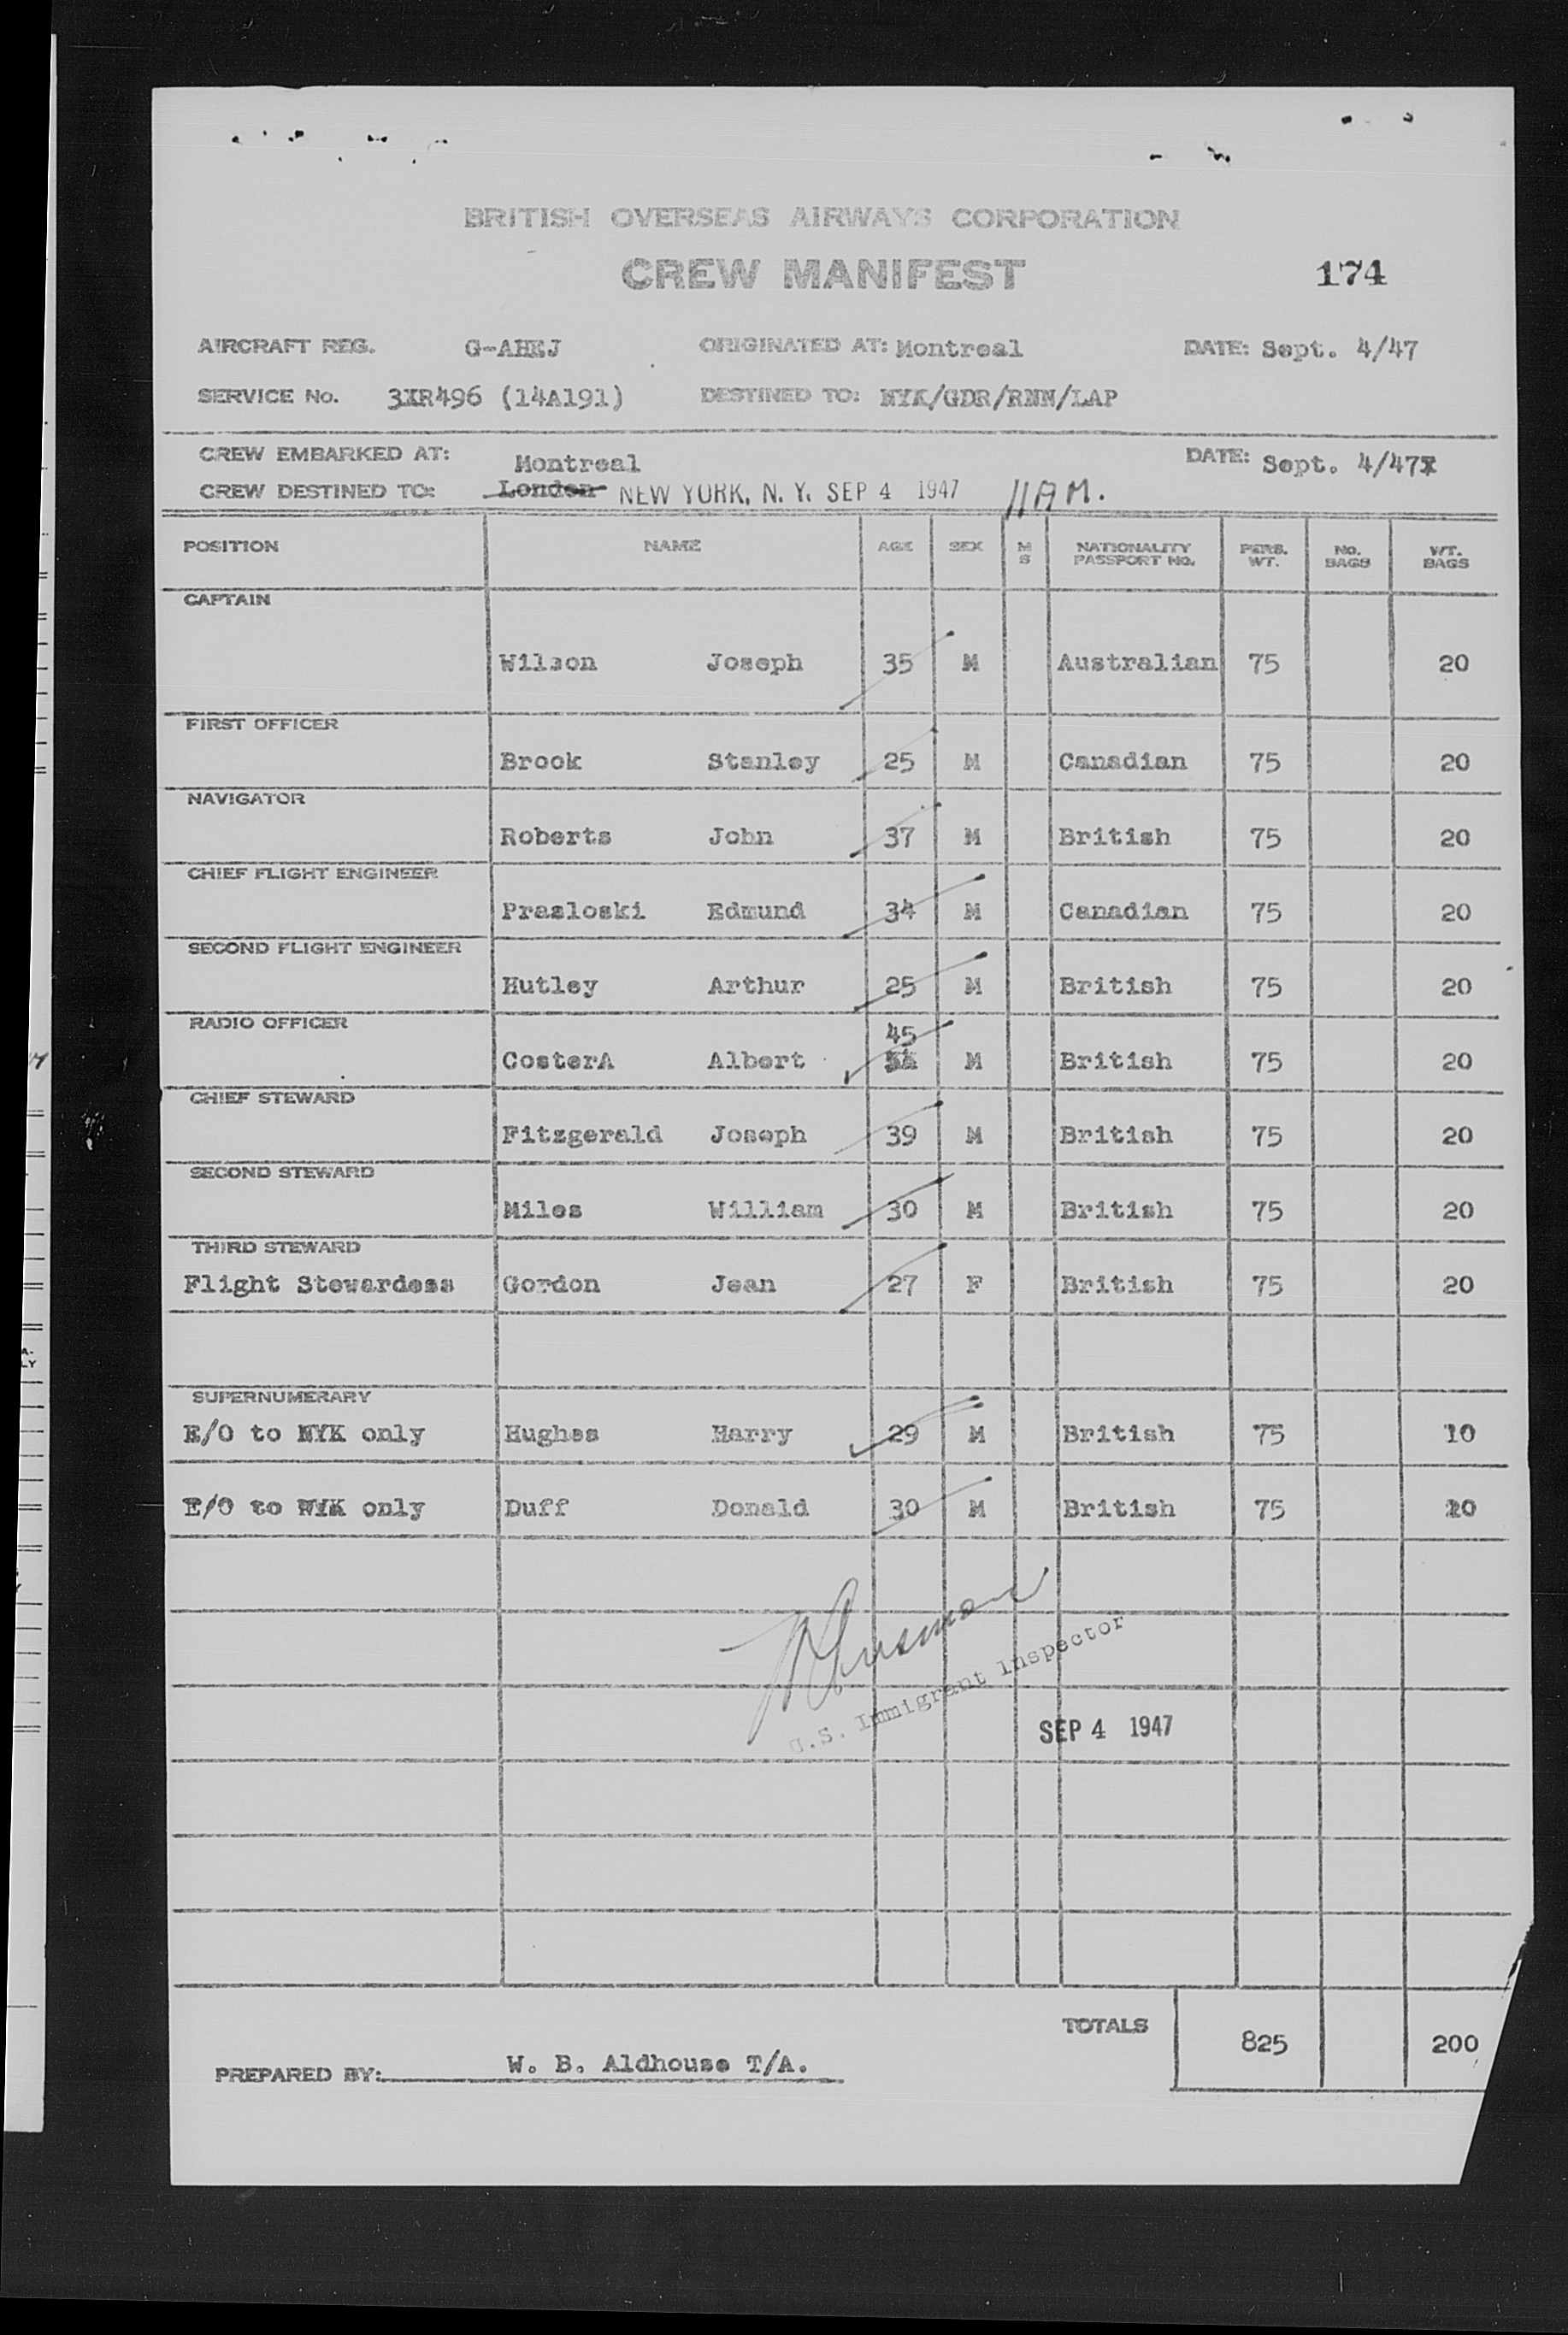 BRITISH OVERSEAS AIRWAYS CORPORATION
CREW MANIFEST 174
AIRCRAFT REG. G-AHEJ ORIGINATED AT: Montreal DATE: Sept. 4/47
SERVICE No. 3XR496 (14A191) DESTINED TO: NYK/GDR/RNN/LAP
CREW EMBARKED AT: Montreal DATE: Sept. 4/47
CREW DESTINED TO: London NEW YORK, N. Y. SEP 4 1947 11 AM.
POSITION NAME AGE SEX M S NATIONALITY PASSPORT NO. PERS. WT. No. BAGS WT. BAGS
CAPTAIN
Wilson Joseph 35 M Australian 75 20
FIRST OFFICER
Brook Stanley 25 M Canadian 75 20
NAVIGATOR
Roberts John 37 M British 75 20
CHIEF FLIGHT ENGINEER
Prasloski Edmund 34 M Canadian 75 20
SECOND FLIGHT ENGINEER
Hutley Arthur 25 M British 75 20
RADIO OFFICER
CosterA Albert 45 M British 75 20
CHIEF STEWARD
Fitzgerald Joseph 39 M British 75 20
SECOND STEWARD
Miles William 30 M British 75 20
THIRD STEWARD
Flight Stewardess Gordon Jean 27 F British 75 20
SUPERNUMERARY
E/O to NYK only Hughes Harry 29 M British 75 10
E/O to NYK only Duff Donald 30 M British 75 10
U.S. Immigrant Inspector
SEP 4 1947
TOTALS 825 200
PREPARED BY: W. B. Aldhouse T/A.